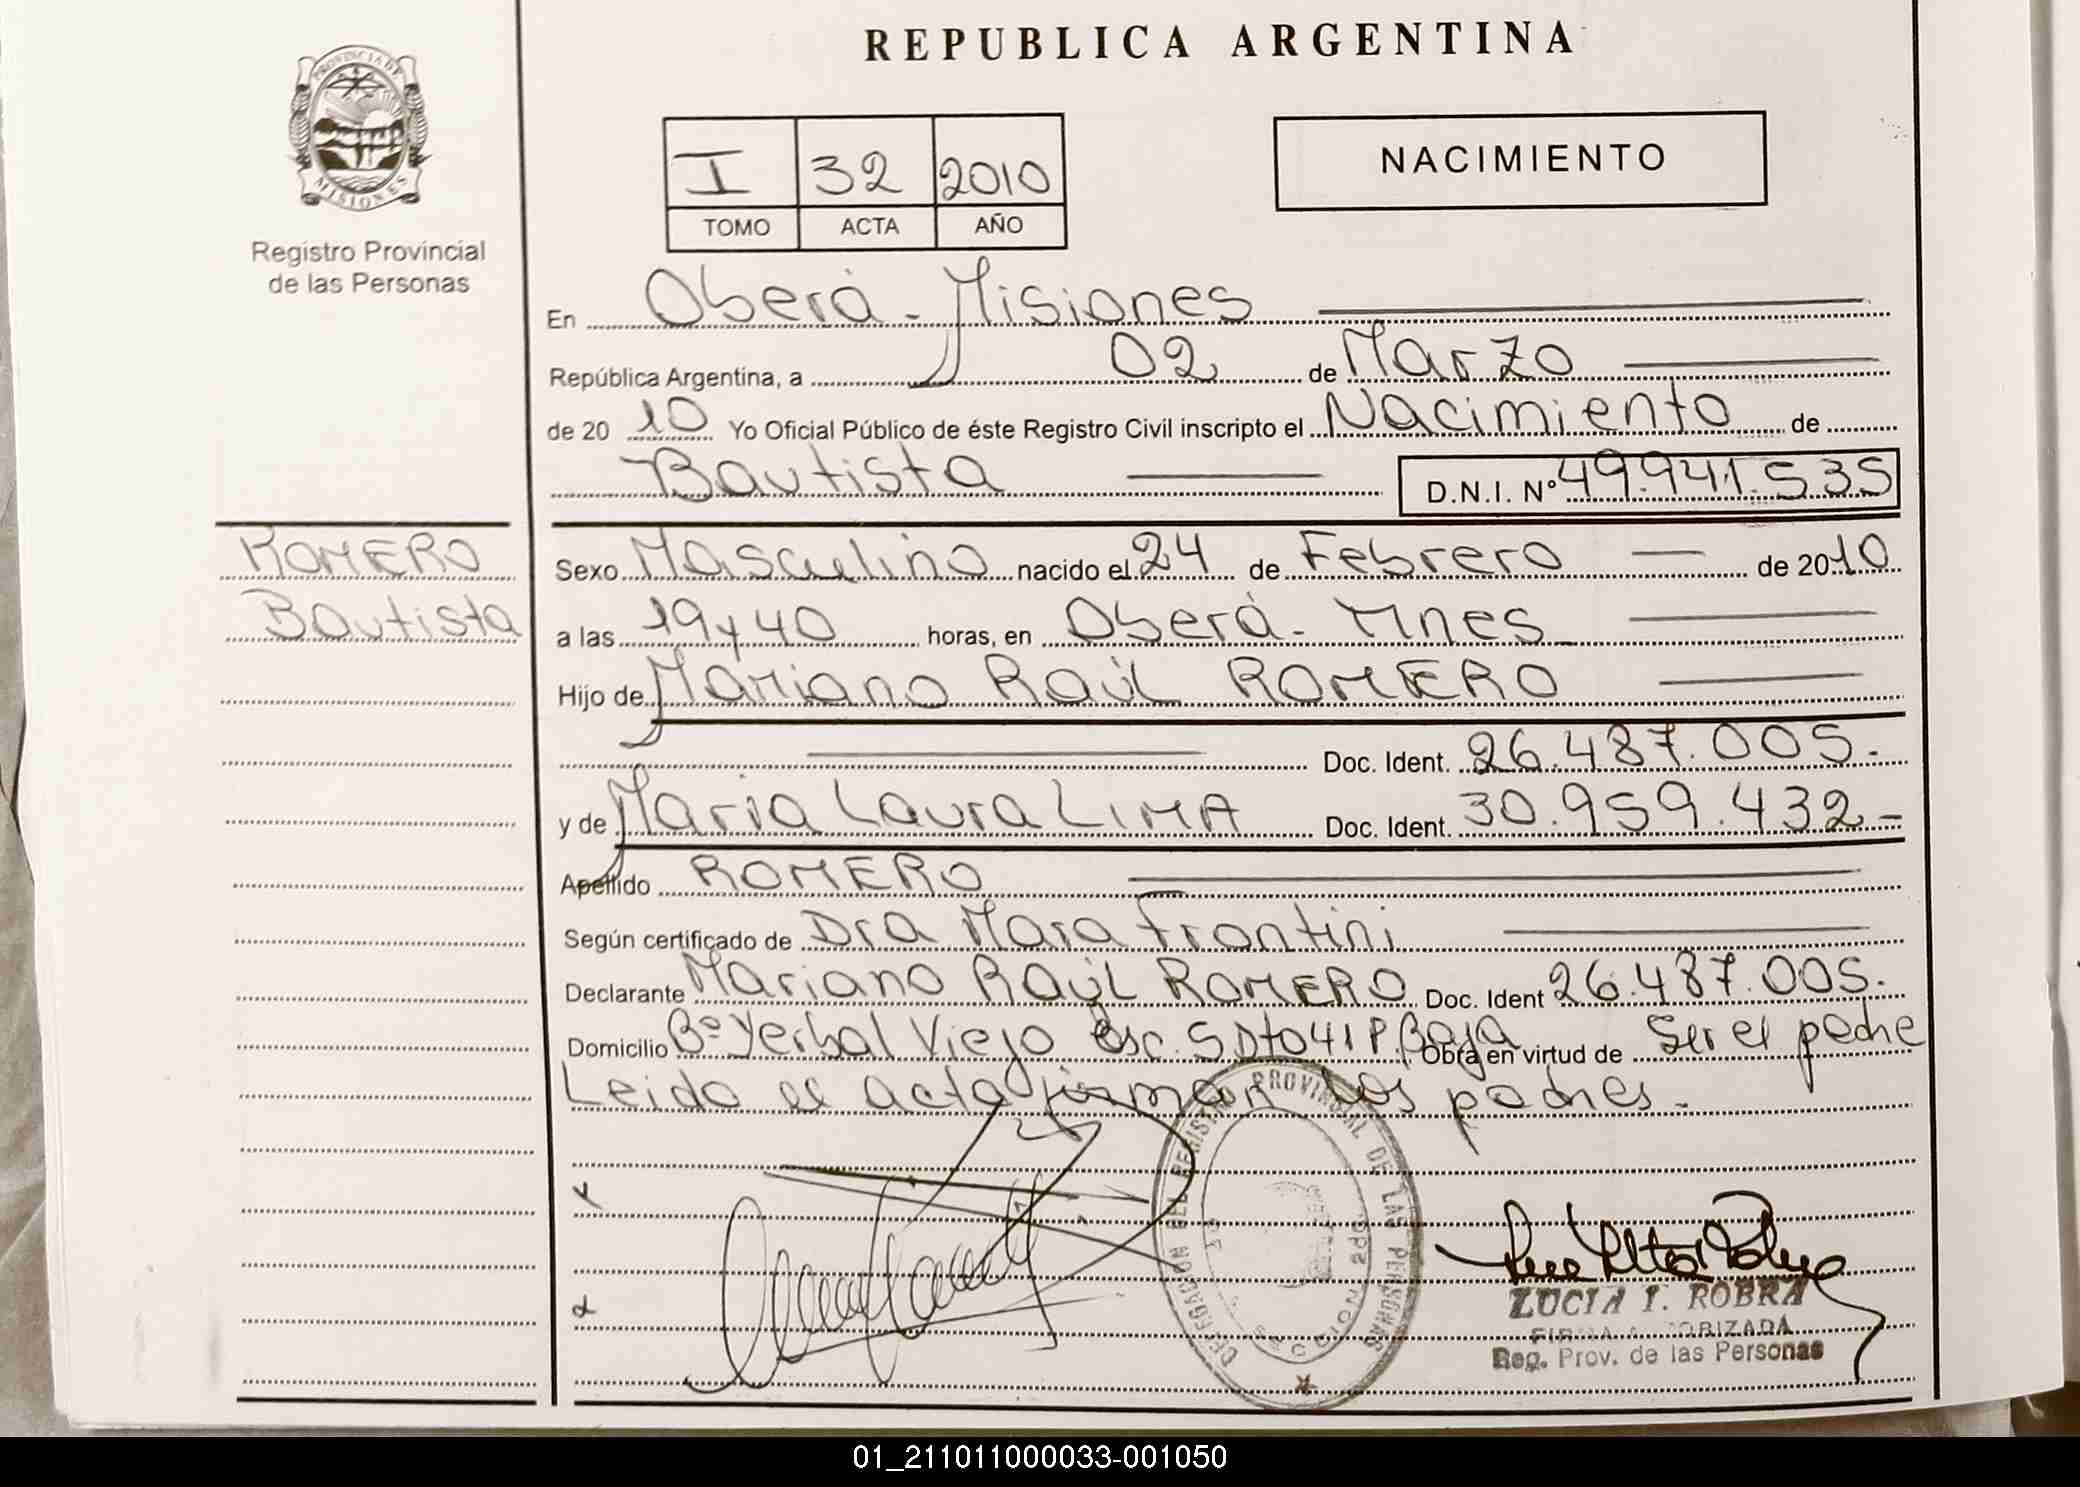 REPUBLICA ARGENTINA
PROVINCIA DE
MISIONES
Registro Provincial
de las Personas
I 32 2010
TOMO ACTA AÑO
NACIMIENTO
En Oberá - Misiones
República Argentina, a 02 de Marzo
de 20 10 Yo Oficial Público de éste Registro Civil inscripto el Nacimiento de
Bautista D.N.I. Nº 49.941.535
ROMERO
Bautista
Sexo Masculino nacido el 24 de Febrero de 2010
a las 19 y 40 horas, en Oberá - Mnes
Hijo de Mariano Raúl ROMERO
Doc. Ident. 26.487.005.-
y de Maria Laura LIMA Doc. Ident. 30.959.432-
Apellido ROMERO
Según certificado de Dra Mara Frontini
Declarante Mariano Raúl ROMERO Doc. Ident 26.487.005.
Domicilio Bº Yerbal Viejo Esc. 5 Dto 41 P. Baja Obra en virtud de Ser el padre
Leido el acta firman los padres.-
DELEGACION DEL REGISTRO PROVINCIAL DE LAS PERSONAS
SECCION 2DA
LUCIA I. ROBRA
FIRMA AUTORIZADA
Reg. Prov. de las Personas
01_211011000033-001050